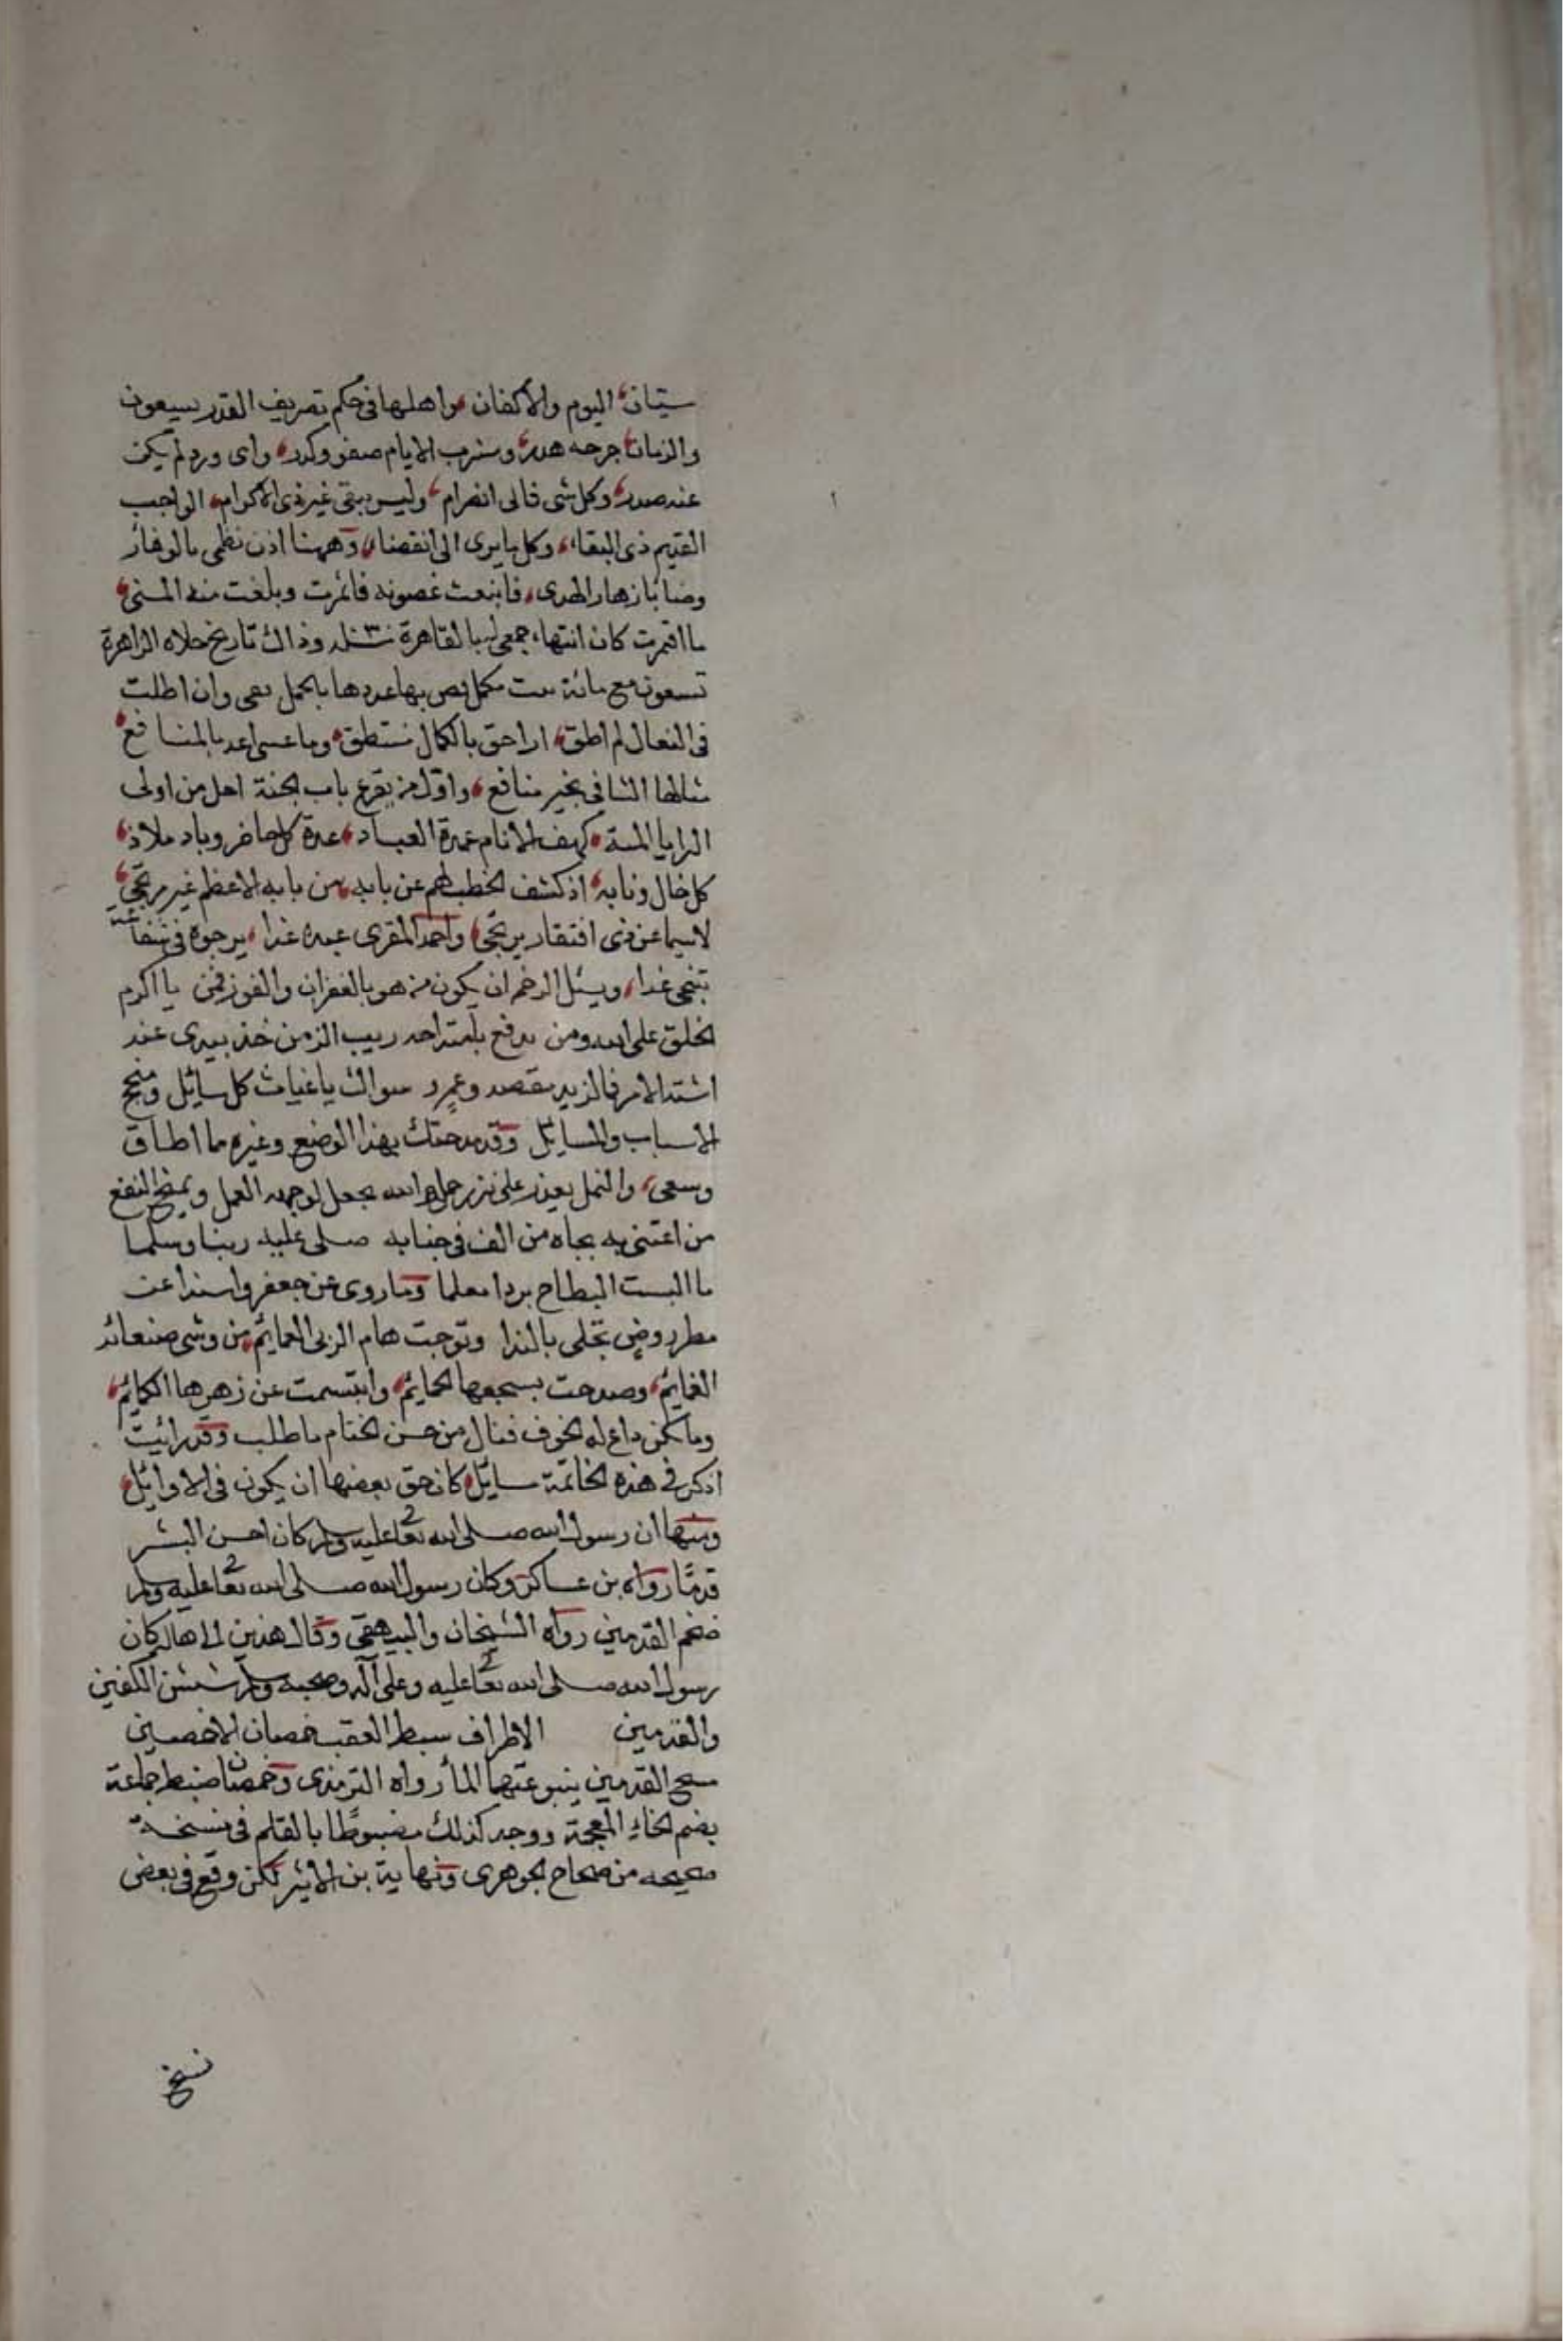 سيّان اليوم والاكفان واهلها في حكم تصريف القدر يسعون
والزمان جرحه هدر وشرب الايام صفو وكدر واى ورد لم يكن
عنه صدر وكل شى فالى انصرام وليس يبقى غير ذى الاكرام الواجب
القديم ذى البقاء وكل ما يرى الى انقضاء وههنا اذن نظمى بالوفاز
وضا بازهار الهدى فاينعت غصونه فاثمرت وبلغت منه المنى
ما اقمرت كان انتهاء جمعى لها بالقاهرة وذاك تاريخ حلاه الزاهرة
تسعون مع مائة بيت مكمل وان اطلت
فى النعال لم اطق بالكمال وما عسى اعد بالمنافع
مثالها الشافى بخير منافع واوّل من يقرع باب الجنة اهل من اولى
كهف الانام عمدة العباد عدة كل حاضر وباد ملاذ
كل خال ونابه اذ كشف الخطب لهم عن بابه من بابه الاعظم غير مرتجى
لاسيما عن ذى افتقار يرتجى واحمد المقرى عبده غدا يرجوه فى شفاعة
تنجى غدا ويسئل الرحمن ان يكون من هو بالغفران والفوز قمن يا اكرم
الخلق على الله ومن يدفع ريب الزمن خذ بيدى عند
اشتد الامر فما لزيد مقصد وعمرو سواك يا غياث كل سايل ومنجح
الاسباب والمسايل وقد مدحتك بهذا الوضع وغيره مما اطاق
وسعى والنمل يعذر على نزر حمل والله يجعل لوجهه العمل ويمنح النفع
من اعتنى به بجاه من الف فى جنابه صلى عليه ربنا وسلما
ما البست البطاح بردا معلما وما روى عن جعفر واسندا عن
مطر روض تحلى بالندا وتوجت هام الربى العمايم من وشى صنعائه
الغمايم وصدحت بسجعها الحمايم وابتسمت عن زهرها الكمايم
وما لكن داع له الخوف فنال من حسن الختام ما طلب وقد رائيت
اذكر فى هذه الخاتمة مسايل كان حق بعضها ان يكون فى الاوايل
ومنها ان رسول الله صلى الله تعا عليه وسلم كان احسن البشر
قدمًا رواه بن عساكر وكان رسول الله صلى الله تعا عليه وسلم
ضخم القدمين رواه الشيخان والبيهقى وقال هند بن ابى هالة كان
رسول الله صلى الله تعا عليه وعلى آله وصحبه وسلم شثن الكفين
والقدمين الاطراف سبط العقب خمصان الاخمصين
مسح القدمين ينبو عنهما الماء رواه الترمذى وخمصان ضبط جماعة
بضم الخاء المعجمة ووجد كذلك مضبوطًا بالقلم فى نسخة
صحيحه من صحاح الجوهرى ونهاية بن الاثير لكن وقع فى بعض
نسخ